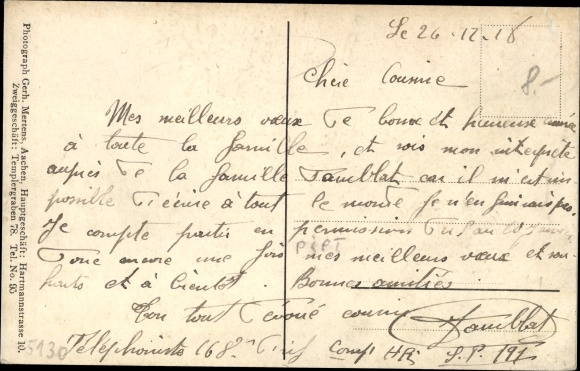 Photograph Gerh. Mertens, Aachen, Hauptgeschäft: Hartmannstrasse 10.
Zweiggeschäft: Templergraben 78. Tel. No. 90
Le 26-12-18
8.-
Chère Cousine
Mes meilleurs vœux de bonne et heureuse année
à toute la famille, et sois mon interprète
auprès de la famille Tamblat car il m'est im
possible d'écrire à tout le monde je n'en finirais pas.
Je compte partir en permission du
donc encore une fois mes meilleurs vœux et sou-
haits et à bientôt. Bonnes amitiés
Ton tout dévoué cousin
Tamblat
Téléphoniste 168e S.P. 191
5130